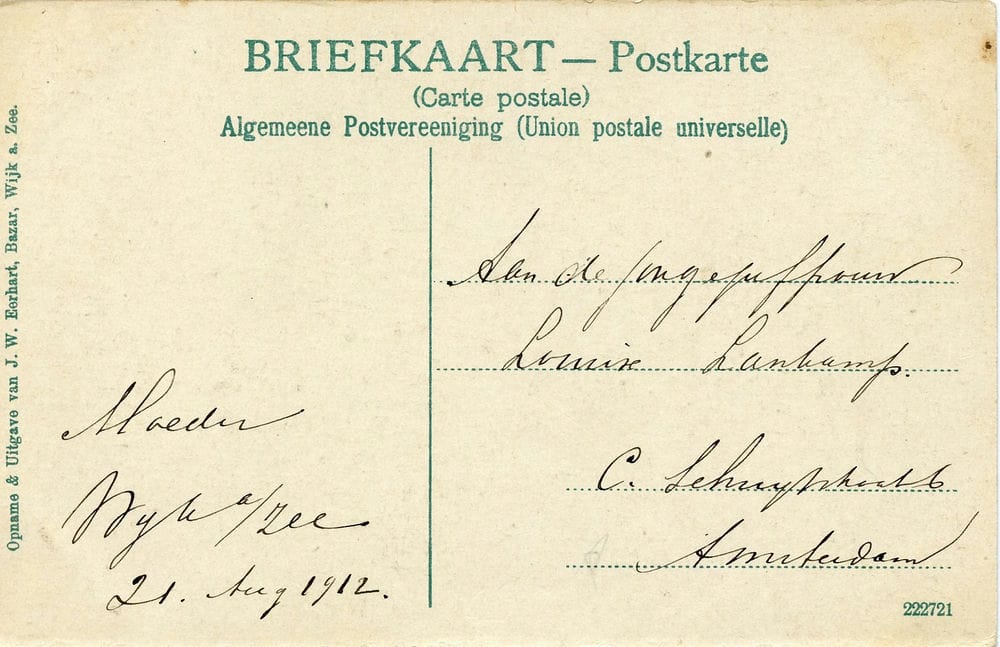 BRIEFKAART — Postkarte
(Carte postale)
Algemeene Postvereeniging (Union postale universelle)
Opname & Uitgave van J. W. Eerhart, Bazar, Wijk a. Zee.
Moeder
Wyk a/Zee
21. Aug 1912.
Aan de Jongejuffrouw
Louise Lankamp.
C.
Amsterdam
222721